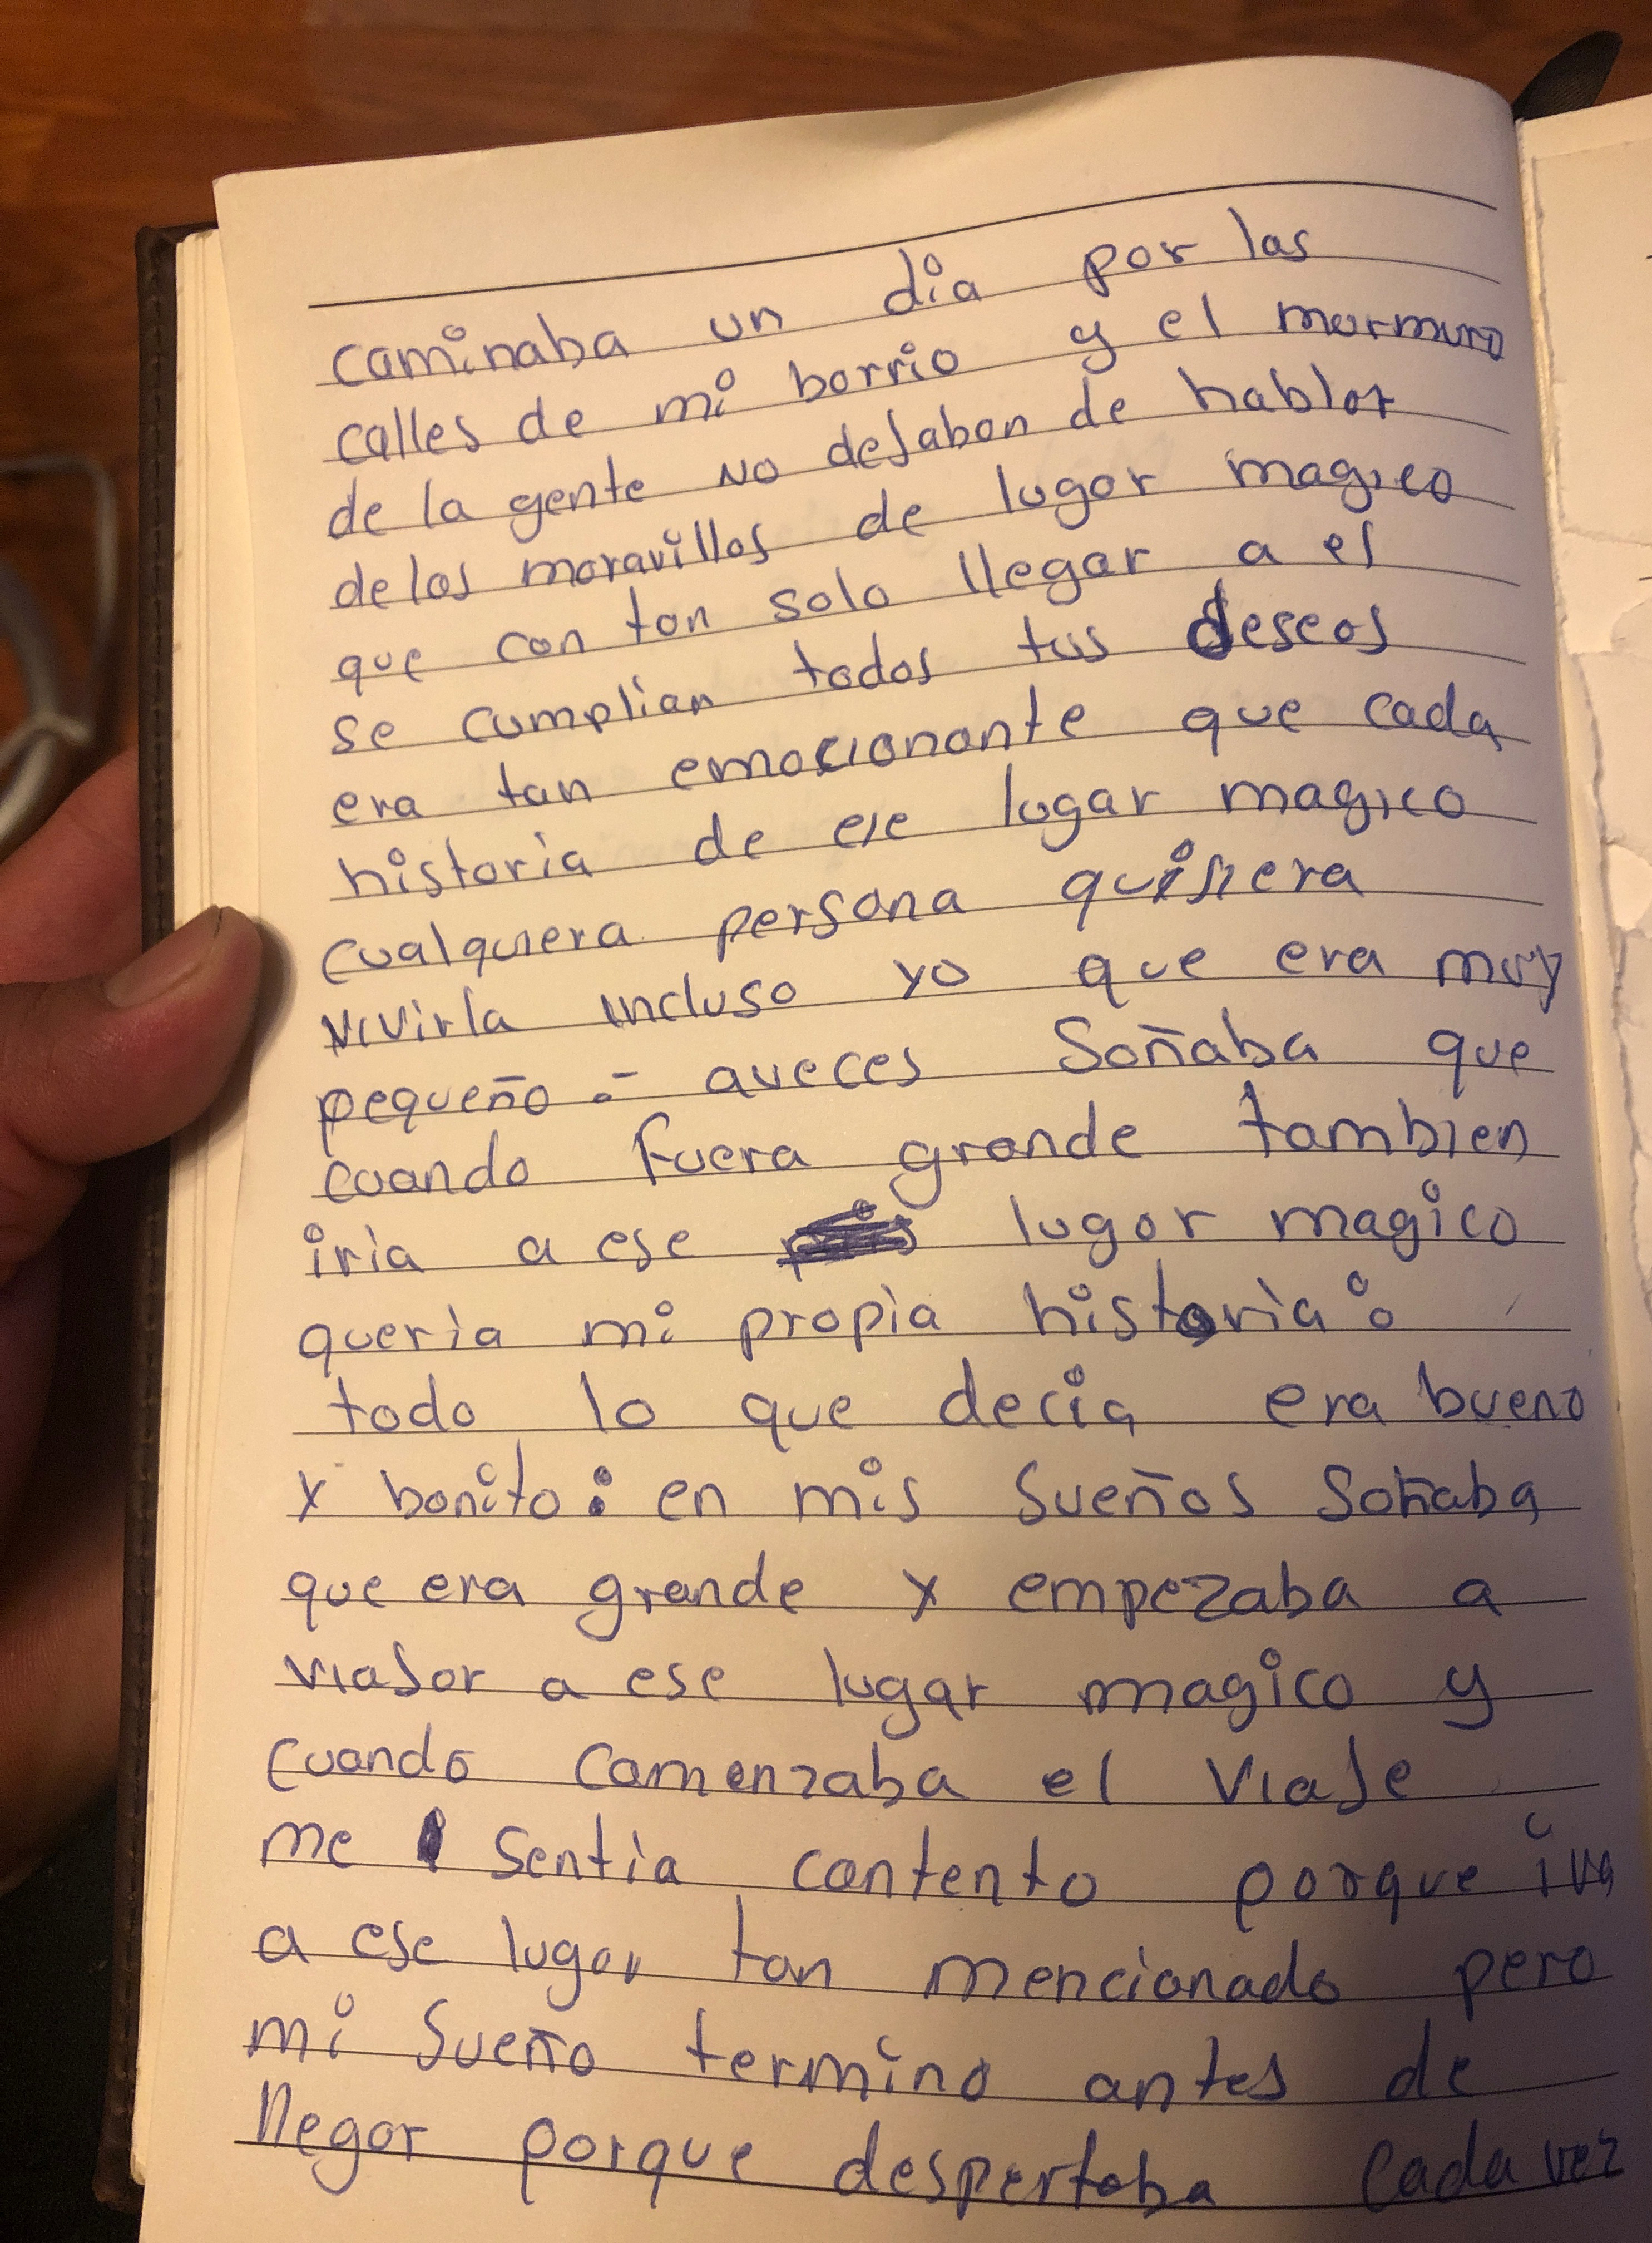 caminaba un dia por las
calles de mi barrio y el murmuro
de la gente no dejaban de hablar
de las maravillas de lugar magico
que con tan solo llegar a el
se cumplian todos tus deseos
era tan emocionante que cada
historia de ese lugar magico
cualquiera persona quisiera
vivirla incluso yo que era muy
pequeño.- aveces Soñaba que
cuando fuera grande tambien
iria a ese lugar magico
queria mi propia historia:
todo lo que decia era bueno
y bonito: en mis Sueños Soñaba
que era grande y empezaba a
viajar a ese lugar magico y
cuando comenzaba el viaje
me sentia contento porque iva
a ese lugar tan mencionado pero
mi Sueño termino antes de
llegar porque despertaba cada vez